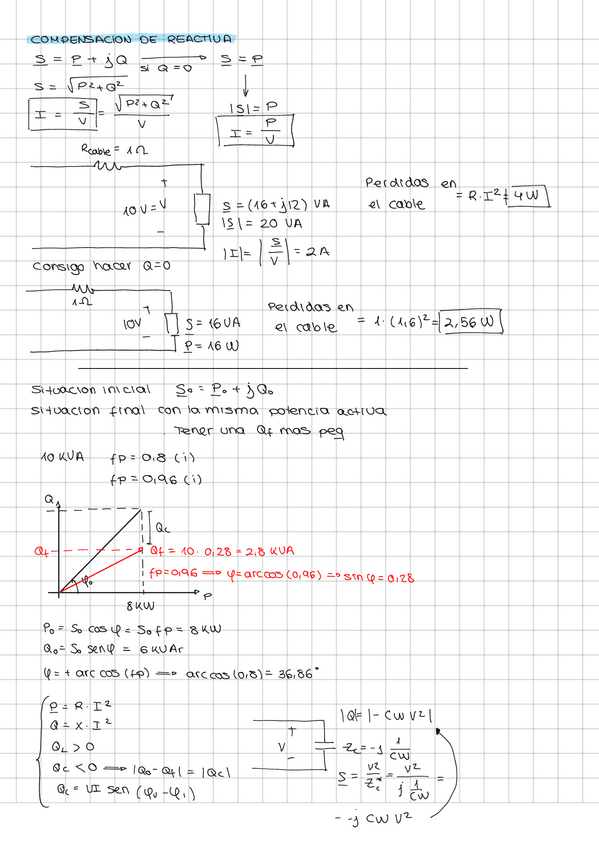 COMPENSACION DE REACTIVA
S = P + jQ si Q = 0 S = P
S = √P²+Q²
I = S/V = √P²+Q²/V
|S| = P
I = P/V
Rcable = 1Ω
10V = V
+
-
S = (16+j12) VA
|S| = 20 VA
|I| = |S/V| = 2A
Perdidas en el cable = R·I² = 4W
Consigo hacer Q=0
1Ω
10V
+
-
S = 16VA
P = 16 W
Perdidas en el cable = 1·(1,6)² = 2,56 W
Situacion inicial S₀ = P₀ + jQ₀
Situacion final con la misma potencia activa
. Tener una Qf mas peq
10 KVA fp = 0,8 (i)
fp = 0,96 (i)
Q
Qc
Qf
Qf = 10·0,28 = 2,8 KVA
fp=0,96 ⇒ φ=arccos(0,96) ⇒ sin φ = 0,28
φ₀
8KW
P
P₀ = S₀ cos φ = S₀ fp = 8 KW
Q₀ = S₀ sen φ = 6 KVAr
φ = + arc cos (fp) ⇒ arccos (0,8) = 36,86°
P = R·I²
Q = X·I²
QL > 0
Qc < 0 ⇒ |Q₀ - Qf| = |Qc|
Qc = VI sen (φv - φi)
V
+
-
|Q| = |-CWV²|
Zc = -j 1/CW
S = V²/Zc* = V²/j 1/CW =
- -j CWV²